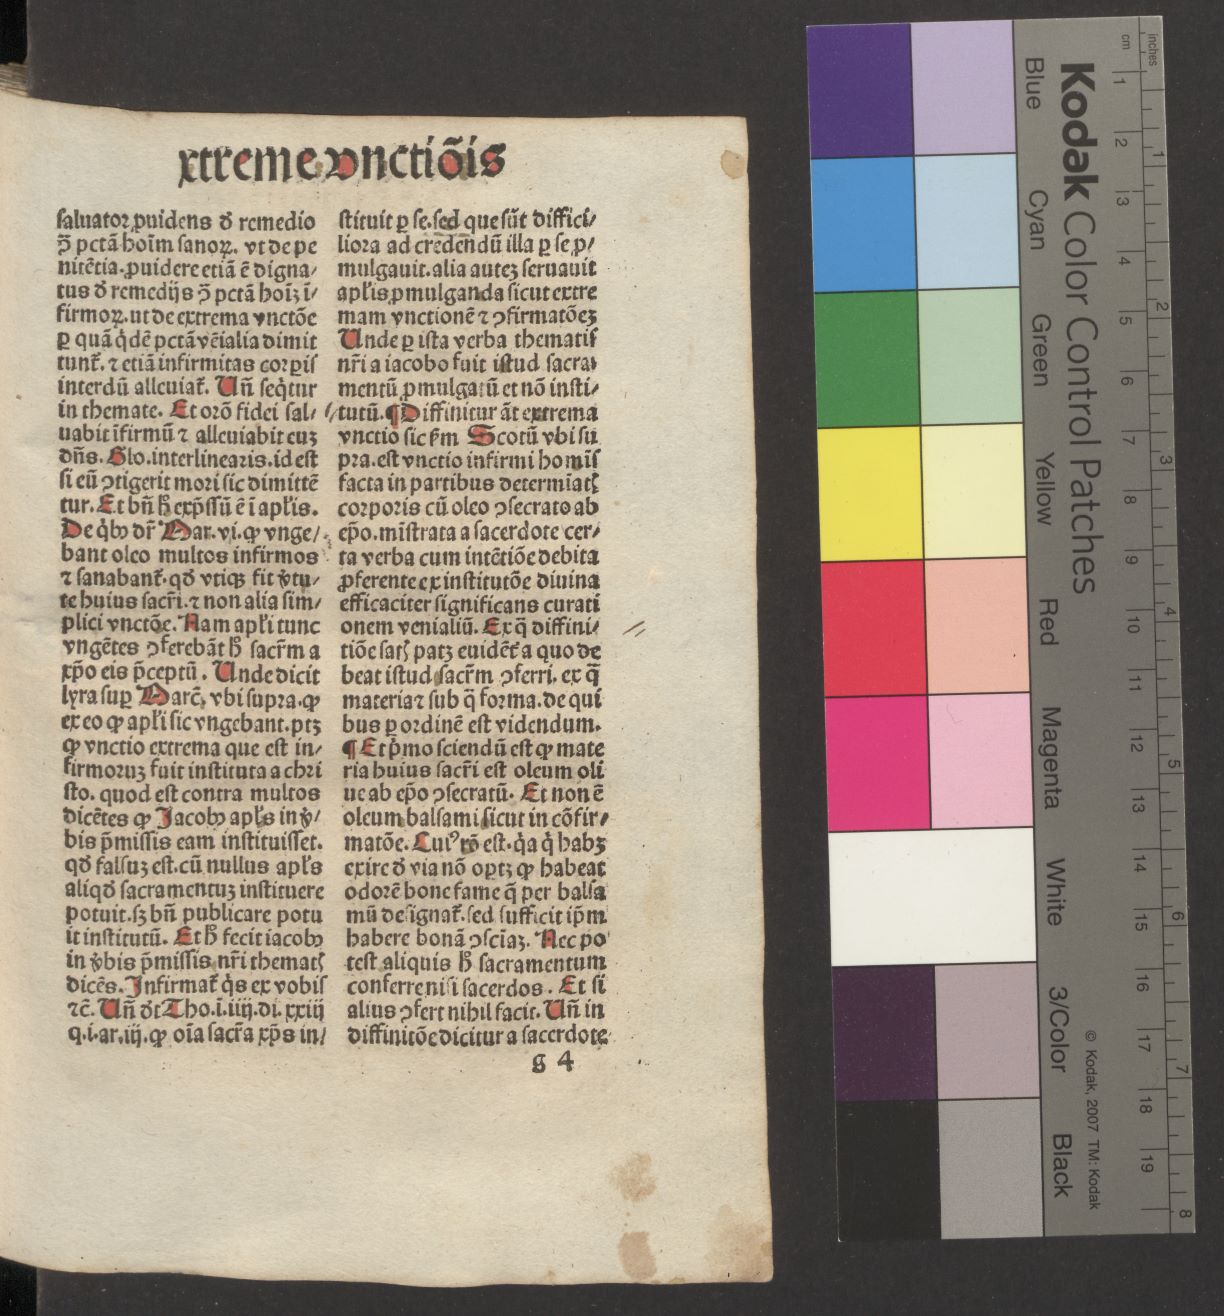 xtreme vnctiõis
saluator ꝓuidens đ remedio
ꝯ̄ pctã hoīm sanoꝝ. vt de pe
nitẽtia. ꝓuidere etiã ẽ digna/
tus đ remedijs ꝯ̄ pctã hoīꝫ ī/
firmoꝝ. ut de extrema vnctõe
ꝑ quã q̇dẽ pctã vẽialia dimit
tunt̃. ⁊ etiã infirmitas corꝑis
interdũ alleuiat̃. Uñ seq̇tur
in themate. Et orõ fidei sal/
uabit ĩfirmũ ⁊ alleuiabit euꝫ
dñs. Glo. interlinearis. id est
si eũ ꝯtigerit mori sic dimittẽ
tur. Et bñ h̃ exp̃ssũ ẽ ĩ apl̃is.
De q̇bꝰ dr̃ Mar. vi. ꝙ vnge/
bant oleo multos infirmos
⁊ sanabant̃. qđ vtiqꝫ fit v̓tu/
te huius sacr̃i. ⁊ non alia sim/
plici vnctõe. Nam apl̃i tunc
vngẽtes ꝯferebãt h̃ sacr̃m a
xp̃o eis p̃ceptũ. Unde dicit
lyra suꝑ Marc̃. vbi supra. ꝙ
ex eo ꝙ apl̃i sic vngebant. ptꝫ
ꝙ vnctio extrema que est in/
firmoruꝫ fuit instituta a chri
sto. quod est contra multos
dicẽtes ꝙ Jacobꝰ apl̃s in v̓/
bis p̃missis eam instituisset.
qđ falsuꝫ est. cũ nullus apl̃s
aliqđ sacramentuꝫ instituere
potuit. sꝫ bñ publicare potu
it institutũ. Et h̃ fecit iacobꝰ
in v̓bis p̃missis nr̃i thematꝭ
dicẽs. Infirmat̃ q̇s ex vobis
⁊c̃. Uñ đt Tho. i. iiij. di. xxiij
q. i. ar. iij. ꝙ oĩa sacr̃a xp̃s in/
stituit ꝑ se. sed que sũt diffici/
liora ad credendũ illa ꝑ se ꝓ/
mulgauit. alia auteꝫ seruauit
apl̃is ꝓmulganda sicut extre
mam vnctionẽ ⁊ ꝯfirmatõeꝫ
Unde ꝑ ista verba thematis
nr̃i a iacobo fuit istud sacra/
mentũ ꝓmulgatũ et nõ insti/
tutũ. ¶ Diffinitur ãt extrema
vnctio sic ẜm Scotũ vbi su
pra. est vnctio infirmi homĩs
facta in partibus determĩatꝭ
corporis cũ oleo ꝯsecrato ab
ep̃o. mĩstrata a sacerdote cer/
ta verba cum intẽtiõe debita
ꝓferente ex institutõe diuina
efficaciter significans curati
onem venialiũ. Ex q̃ diffini/
tiõe satꝭ patꝫ euidẽt̃ a quo de
beat istud sacr̃m ꝯferri. ex q̃
materia ⁊ sub q̃ forma. de qui
bus ꝑ ordinẽ est videndum.
¶ Et p̓mo sciendũ est ꝙ mate
ria huius sacr̃i est oleum oli
ue ab ep̃o ꝯsecratũ. Et non ẽ
oleum balsami sicut in cõfir/
matõe. Cuiꝰ rõ est. q̇a q̇ habꝫ
exire đ via nõ oꝑtꝫ ꝙ habeat
odorẽ bone fame q̃ per balsa
mũ designat̃. sed sufficit ip̃m
habere bonã ꝯsciaꝫ. Nec po
test aliquis h̃ sacramentum
conferre nisi sacerdos. Et si
alius ꝯfert nihil facit. Uñ in
diffinitõe dicitur a sacerdote
g 4
Kodak Color Control Patches
© Kodak, 2007 TM: Kodak
Blue
Cyan
Green
Yellow
Red
Magenta
White
3/Color
Black
cm
1
2
3
4
5
6
7
8
9
10
11
12
13
14
15
16
17
18
19
inches
1
2
3
4
5
6
7
8